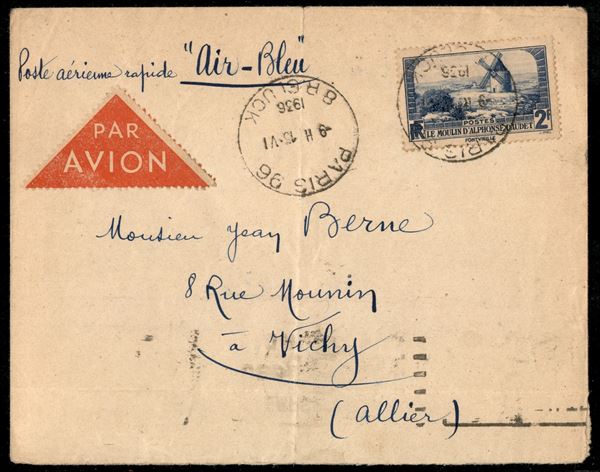 Poste aérienne rapide "Air-Bleu"
PAR
AVION
PARIS 96
8 R. GLUCK
9 H 15 · VI
1936
POSTES
RF LE MOULIN D'ALPHONSE DAUDET 2F
FONTVIEILLE
PARIS
1936
Monsieur Jean Berne
8 Rue Mounin
à Vichy
(Allier)